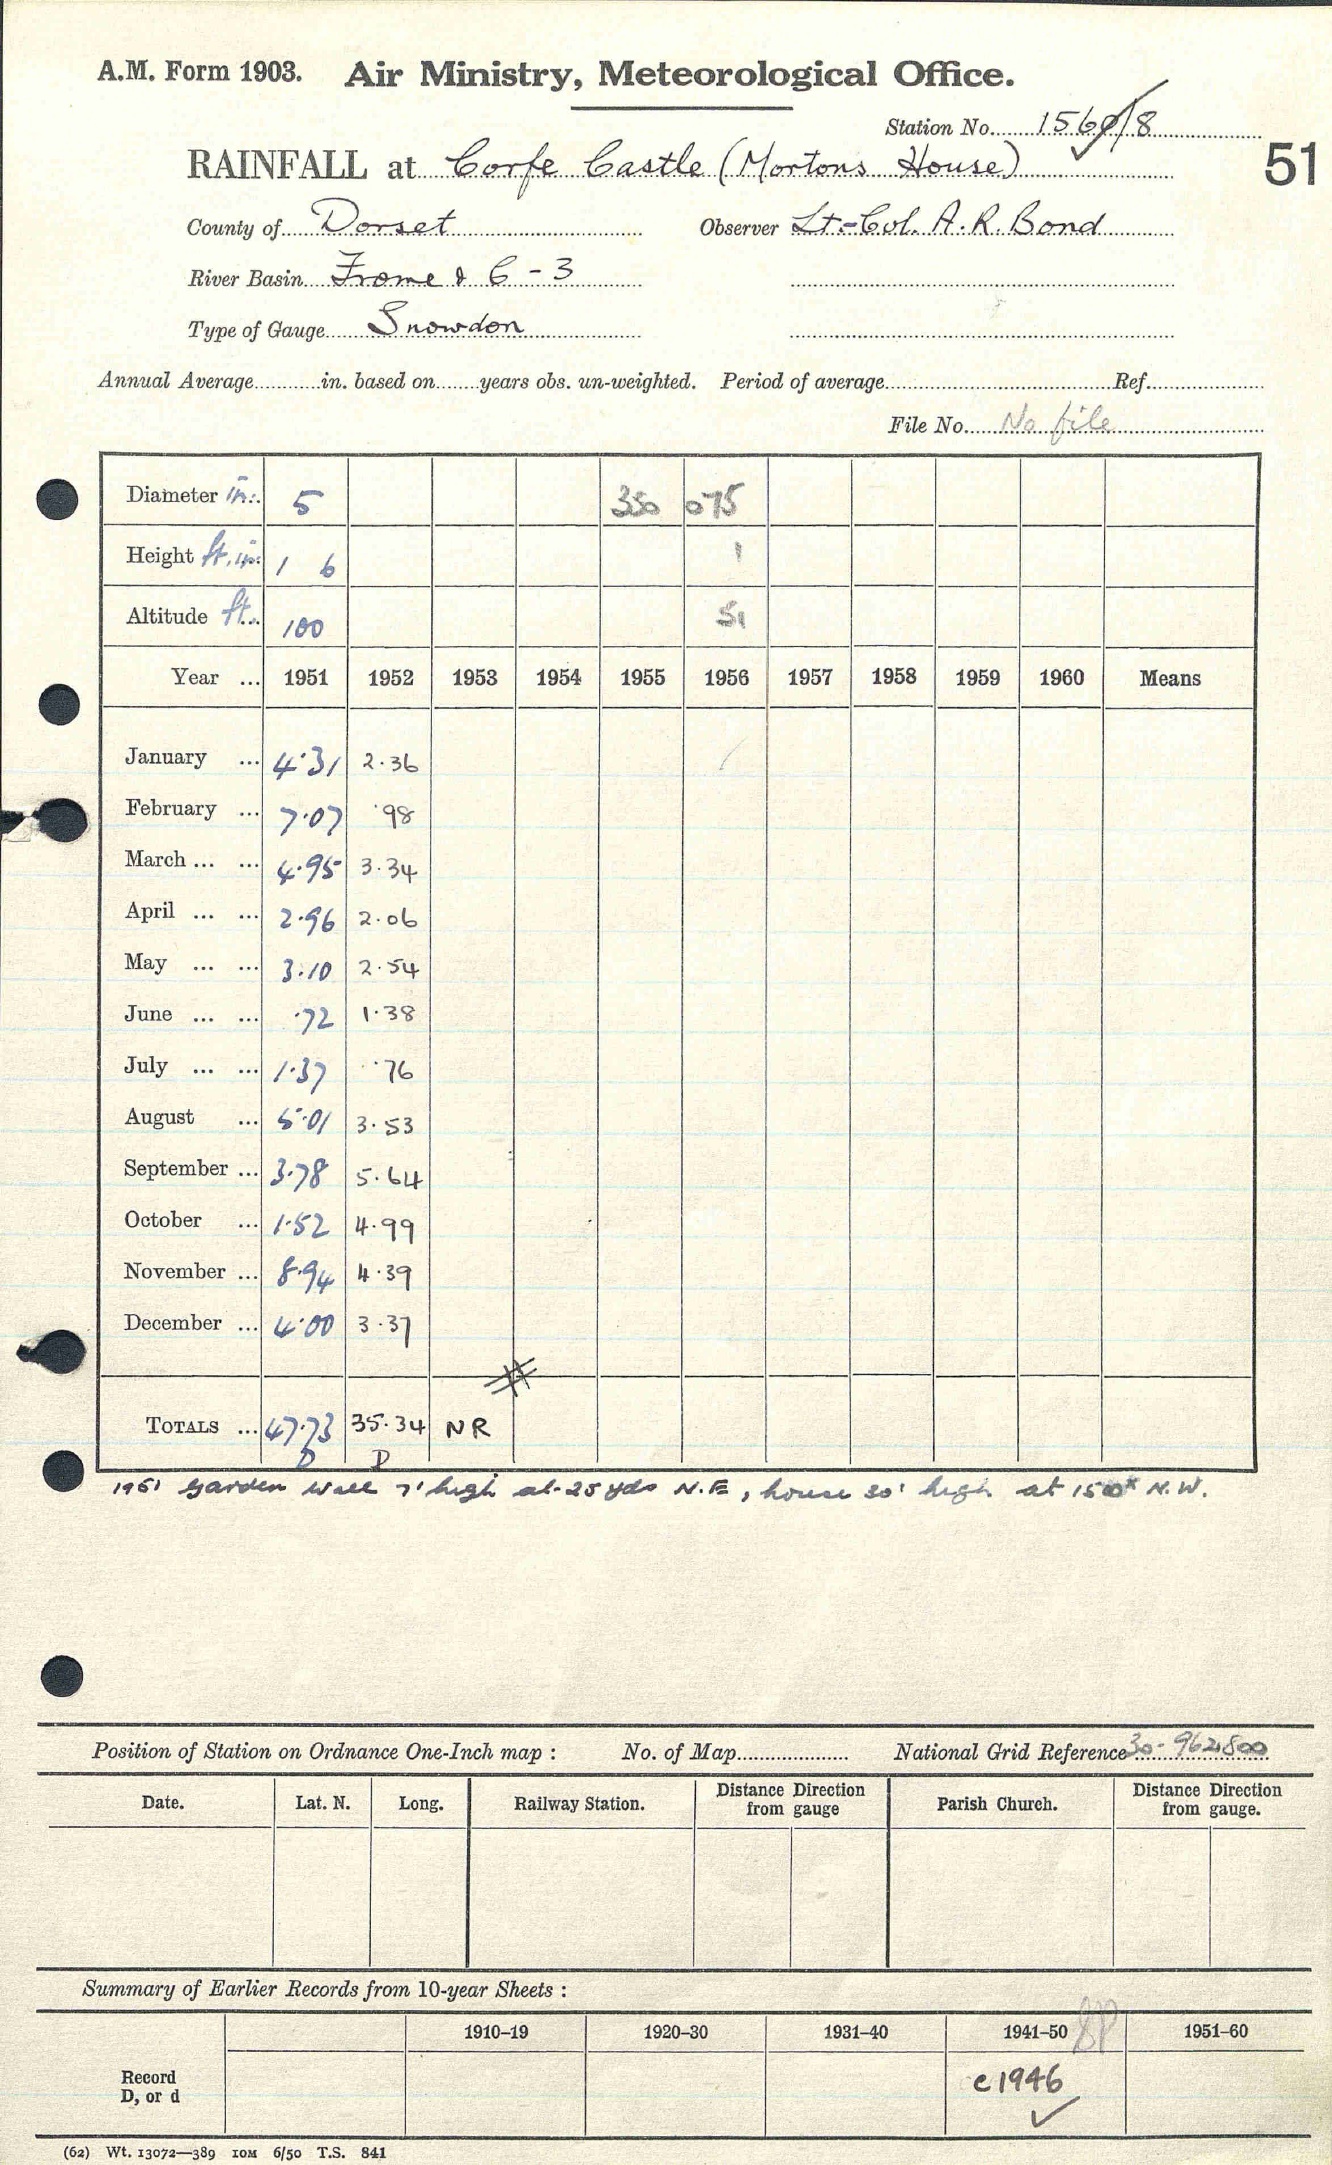 A.M. Form 1903. Air Ministry, Meteorological Office.
Station No. 1560/8
51
RAINFALL at Corfe Castle (Mortons House)
County of Dorset Observer Lt-Col. A.R. Bond
River Basin Frome & C-3
Type of Gauge Snowdon
Annual Average in. based on years obs. un-weighted. Period of average Ref.
File No. No file
Diameter in. 5 350 075
Height ft. in. 1 6 1
Altitude ft. 100 51
Year ... 1951 1952 1953 1954 1955 1956 1957 1958 1959 1960 Means
January ... 4.31 2.36
February ... 7.07 .98
March ... ... 4.95 3.34
April ... ... 2.96 2.06
May ... ... 3.10 2.54
June ... ... .72 1.38
July ... ... 1.37 .76
August ... 5.01 3.53
September ... 3.78 5.64
October ... 1.52 4.99
November ... 8.94 4.39
December ... 4.00 3.37
#
TOTALS ... 47.73 35.34 NR
D D
1951 Garden wall 7' high at 25 yds N.E, house 30' high at N.W.
Position of Station on Ordnance One-Inch map : No. of Map National Grid Reference 30-962800
Date. Lat. N. Long. Railway Station. Distance from gauge Direction Parish Church. Distance from gauge. Direction
Summary of Earlier Records from 10-year Sheets :
1910–19 1920–30 1931–40 1941–50 1951–60
Record
D, or d
c1946
(62) Wt. 13072—389 10M 6/50 T.S. 841